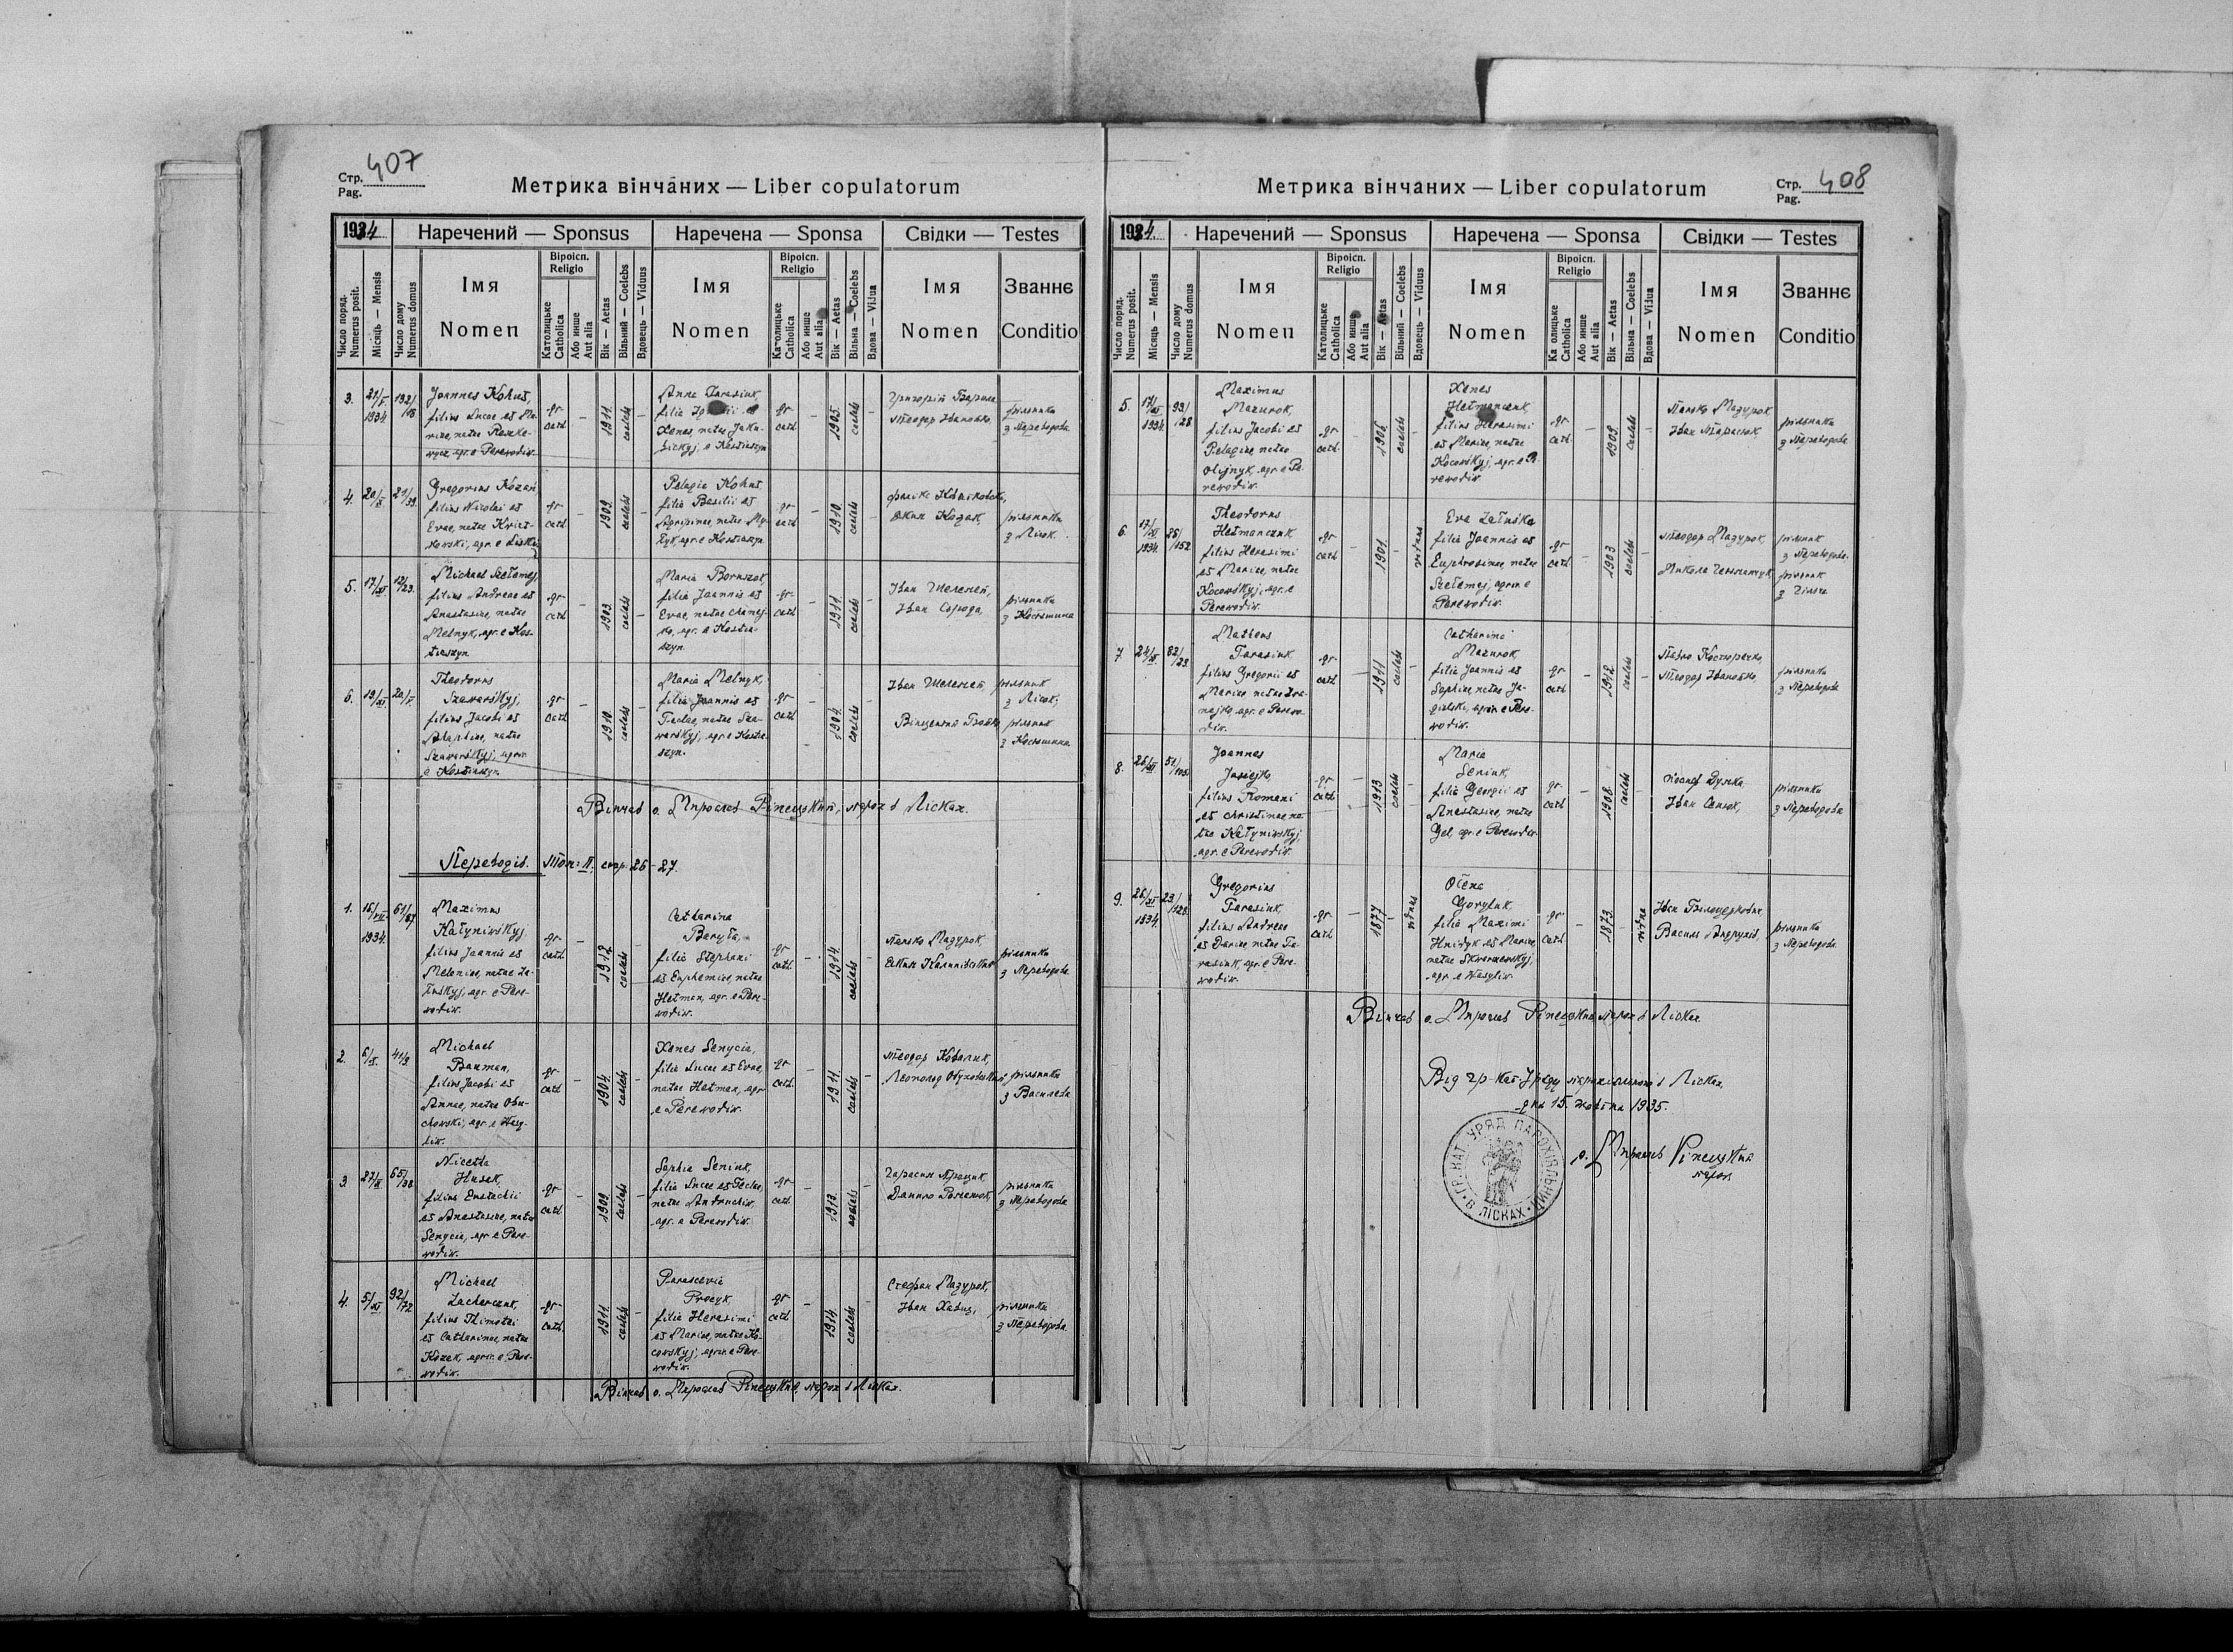 Стр. 407
Pag.
Метрика вінчаних — Liber copulatorum
1934
Наречений — Sponsus
Наречена — Sponsa
Свідки — Testes
Число поряд.
Numerus posit.
Місяць — Mensis
Число дому
Numerus domus
Імя
Nomen
Віроісп.
Religio
Католицьке
Catholica
Або инше
Aut alia
Вік — Aetas
Вільний — Coelebs
Вдовець — Viduus
Імя
Nomen
Віроісп.
Religio
Католицьке
Catholica
Або инше
Aut alia
Вік — Aetas
Вільна — Coelebs
Вдова — Vidua
Імя
Nomen
Званнє
Conditio
3.
1934
Joannes Kohut,
filius Lucae et Ma-
riae, natae
agr. e Perewodiw.
gr.
cath
1911.
coelebs
Anna Tarasiuk,
filia
Xenes, natae Jaku-
bickyj, e Kostiaszyn
gr.
cath
1905.
coelebs
Григорій
Теодор Іванейко
рільники
з Переводова
4.
Gregorius Kozak
filius Nicolai et
Evae, natae Kwiat-
kowski, agr. e Liski
gr.
cath
1909.
coelebs
Pelagia Kohut
filia Basilii et
Agripinae, natae
agr. e Kostiaszyn
gr.
cath
1910.
coelebs
Яким Козак,
рільники
з Лісок.
5.
17/XI.
12/23.
Michael Szełemej,
filius Andreae et
Anastasiae, natae
Melnyk, agr. e Kos-
tiaszyn
gr.
cath
1903.
coelebs
Maria
filia Joannis et
Evae, natae
agr. e Kostia-
szyn.
gr.
cath
1911.
coelebs
Іван Шелемей,
Іван Сорока,
рільники
з Костяшина
6.
19/XI.
Theodorus
Szawarśkyj,
filius Jacobi et
natae
Szawarśkyj, agr.
e Kostiaszyn
gr.
cath
1910.
coelebs
Maria Melnyk,
filia Joannis et
Teclae, natae Sza-
warśkyj, agr. e Kostia-
szyn.
gr.
cath
1904.
coelebs
Іван Шелемей,
рільник
з Лісок;
рільник
з Костяшина
Вінчав о. Мирослав Ріпецький, парох в Лісках.
Переводів. Том: II. стор. 26-27.
1.
1934.
61/67
Maximus
Katyniwśkyj
filius Joannis et
Melaniae, natae Za-
łuśkyj, agr. e Pere-
wodiw.
gr.
cath.
1912.
coelebs
Catharina
Baryła,
filia Stephani
et Euphemiae, natae
Hetman, agr. e Pere-
wodiw.
gr.
cath.
1914.
coelebs
Панько Мазурок,
рільники
з Переводова
2.
41/9
Michael
Bauman,
filius Jacobi et
Annae, natae Obu-
chowski, agr. e Wasy-
liw.
gr.
cath
1904.
coelebs
Xenes Senycia,
filia Lucae et Evae,
natae Hetman, agr.
e Perewodiw.
gr.
cath.
1911.
coelebs
Теодор Ковалик,
Леополод Обуховський,
рільники
з Василева
3
65/38
Nicetta
Husak,
filius Eustachii
et Anastasiae, natae
Senycia, agr. e Pere-
wodiw.
gr.
cath.
1909.
coelebs
Sophia Seniuk,
filia Lucae et Teclae,
natae Andruchiw,
agr. e Perewodiw.
gr.
cath.
1913.
coelebs
Гарасим Процик,
рільники
з Переводова
4.
5/XI.
92/72
Michael
Zacharczuk,
filius Thimotei
et Catharinae, natae
Kozak, agr. e Pere-
wodiw.
gr.
cath.
1911.
coelebs
Parascevia
Procyk,
filia Herasimi
et Mariae, natae Ko-
cowśkyj, agr. e Pere-
wodiw.
gr.
cath
1914.
coelebs
Стефан Мазурок,
рільники
з Переводова
Вінчав о. Мирослав Ріпецький, парох в Лісках.
Метрика вінчаних — Liber copulatorum
Стр. 408
Pag.
1934
Наречений — Sponsus
Наречена — Sponsa
Свідки — Testes
Число поряд.
Numerus posit.
Місяць — Mensis
Число дому
Numerus domus
Імя
Nomen
Віроісп.
Religio
Католицьке
Catholica
Або инше
Aut alia
Вік — Aetas
Вільний — Coelebs
Вдовець — Viduus
Імя
Nomen
Віроісп.
Religio
Ка олицьке
Catholica
Або инше
Aut alia
Вік — Aetas
Вільна — Coelebs
Вдова — Vidua
Імя
Nomen
Званнє
Conditio
5.
17/XI
1934
93/128
Maximus
Mazurok,
filius Jacobi et
Pelagiae, natae
Olijnyk, agr. e Pe-
rewodiw.
gr.
cath.
coelebs
Xenes
Hetmanczuk,
filia Herasimi
et Mariae, natae
Kocowśkyj, agr. e Pe-
rewodiw.
gr.
cath.
1909.
coelebs
Панько Мазурок,
Іван Тарасюк,
рільники
з Переводова
6
17/XI
1934.
Theodorus
Hetmanczuk
filius Herasimi
et Mariae, natae
Kocowśkyj, agr. e
Perewodiw.
gr.
cath
1901.
viduus
Eva Załuśka
filia Joannis et
Euphrosinae, natae
Szełemej, agr. e
Perewodiw.
gr.
cath
1903
coelebs
Теодор Мазурок,
рільник
з Переводова.
Микола
рільник
7
24/XI.
82/23
Matteus
Tarasiuk,
filius Gregorii et
Mariae, natae Iwa-
nejko, agr. e Perewo-
diw.
gr.
cath
1911
coelebs
Catharina
Mazurok,
filia Joannis et
Sophiae, natae Ja-
gielski, agr. e Pere-
wodiw.
gr.
cath
1912.
coelebs
Теодор Іванейко,
рільники
з Переводова
8.
Joannes
filius Romani
et Christinae, na-
tae Katyniwśkyj,
agr. e Perewodiw.
gr.
cath.
1913
coelebs
Maria
Seniuk,
filia Georgii et
Anastasiae, natae
Gel, agr. e Perewodiw
gr.
cath
1908.
coelebs
Іван Сенюк,
рільники
з Переводова
9.
26/XI
1934.
23/128.
Gregorius
Tarasiuk,
filius Andreae
et Dariae, natae Ta-
rasiuk, agr. e Pere-
wodiw.
gr.
cath
1877
viduus
Ołena
filia Maximi
Hnidyk et Mariae,
natae
agr. e Wasyliw.
gr.
cath
1873.
vidua
Василь Андрухів,
рільники
з Переводова
Вінчав о. Мирослав Ріпецький, парох в Лісках.
Від гр-кат Уряду парохіяльного в Лісках,
дня 15. жовтня 1935.
о. Мирослав Ріпецький
парох
ГР. КАТ. УРЯД ПАРОХІЯЛЬНИЙ В ЛІСКАХ